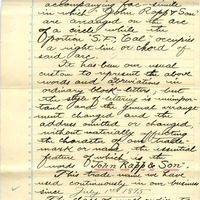 accompanying fac-simile
in which "John Rapp & Son"
are arranged on the arc
of a circle while the
portion "S.F. Cal." occupies
a right line or chord of
said arc.
It has been our usual
custom to represent the above
words and abbreviations in
ordinary block-letters, but
the style of lettering is unimpor-
tant the general arrange-
ment changed and the
address omitted or changed,
without materially affecting
the character of our trade
mark the essential
feature of which is the
words "John Rapp & Son".
This trade mark we have
used continuously in our business
since July 1st 1885